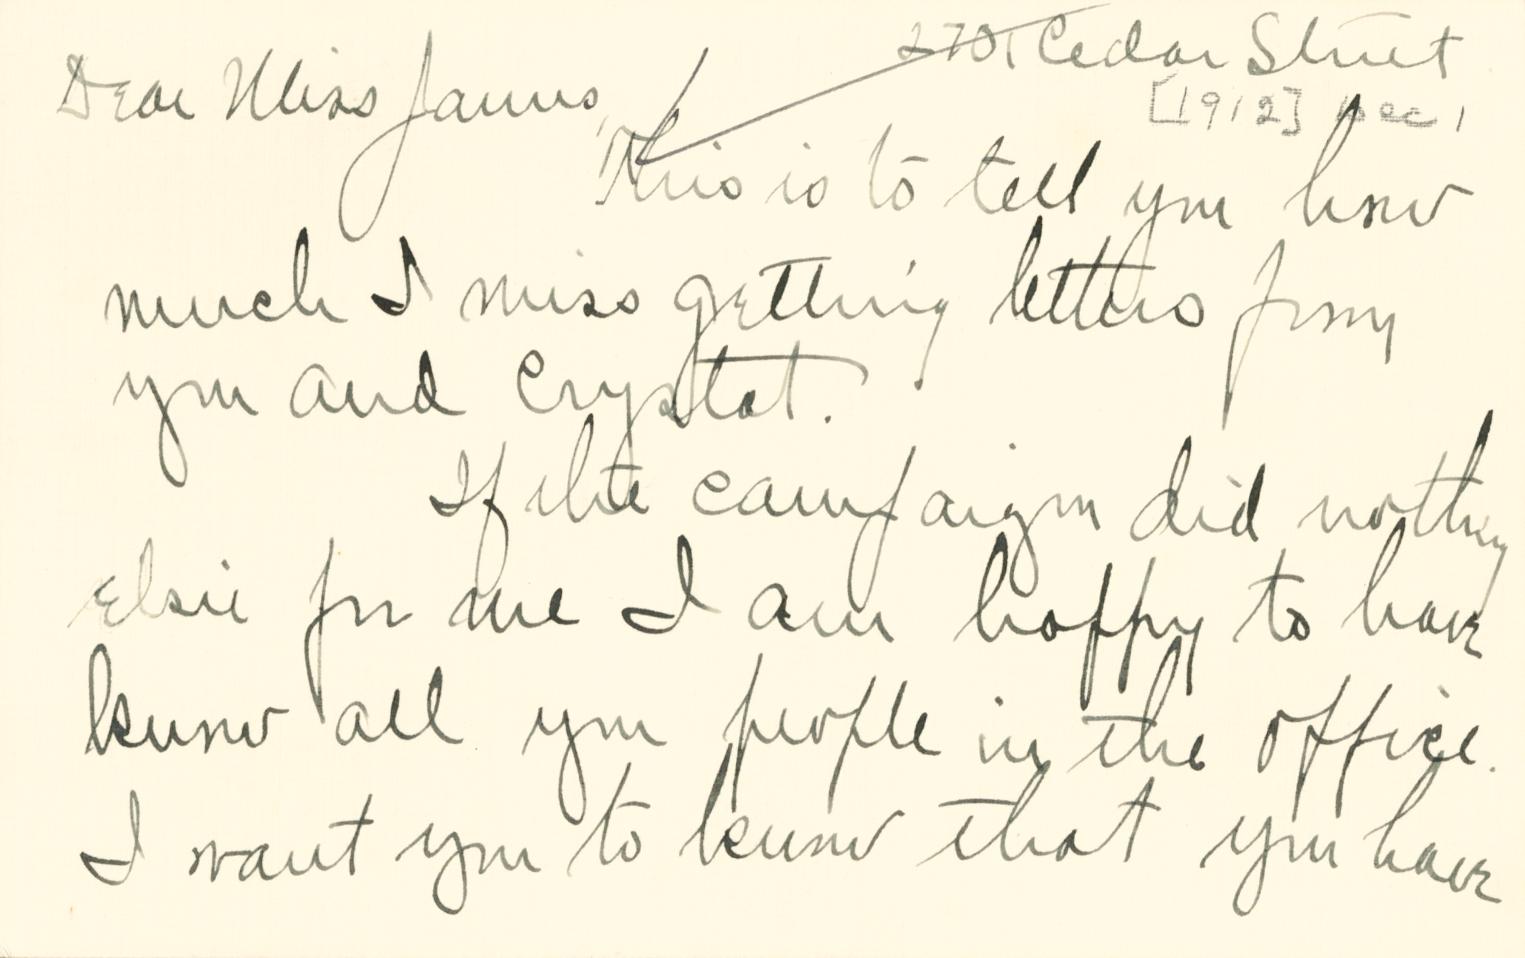 2701 Cedar Street
[1912] Dec 1
Dear Miss James,
This is to tell you how
much I miss getting letters from
you and Crystal.
If the campaign did nothing
else for me I am happy to have
know all you people in the office.
I want you to know that you have